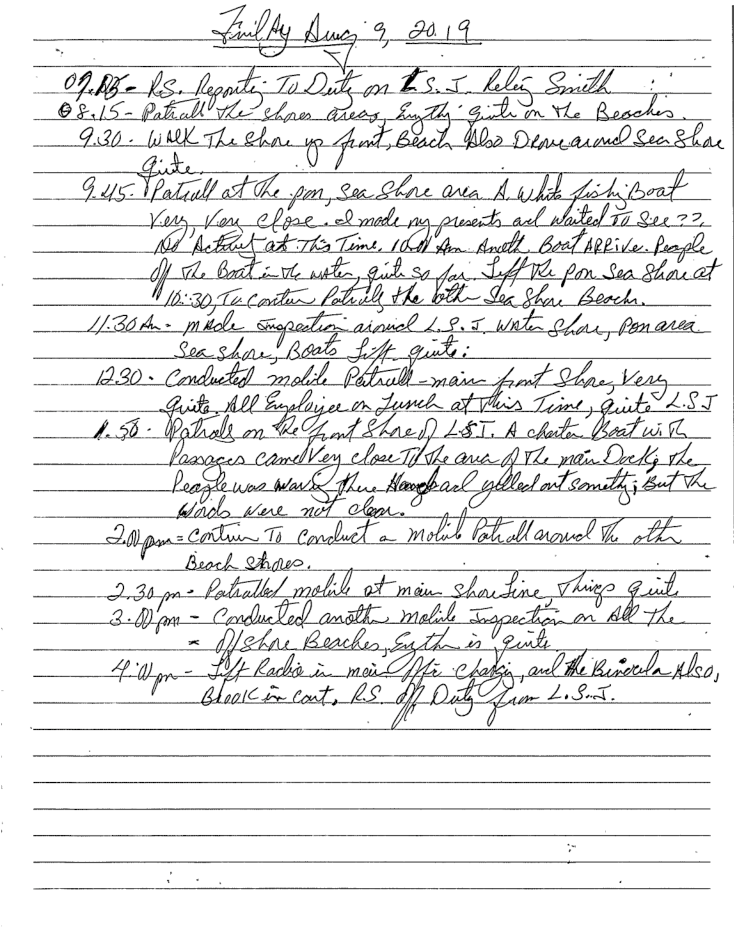 Friday Aug 9, 2019
R.S. Reporting To Duty on L.S.J. Smith
08.15 - Patrall The shores areas, quite on The Beaches.
9.30 - WALK The Shore up front, Beach Also Drove around Sea Shore
quite.
9.45. Patrall at The pon, Sea Shore area A white fishing Boat
Very, Very Close. I made my presents and waited To See ??,
No at This Time. Am Boat ARRive. People
off The Boat in The water, quite so far. Left The pon Sea Shore at
10:30, To Patrall The other Sea Shore Beach.
11.30 Am - made Inspection around L.S.J. water Shore, Pon area
Sea Shore, Boats Left quite.
12.30 - Conducted mobile Patrall - main front Shore, Very
quite. All Employee on Lunch at This Time, quite L.S.J
1.50 - Patrols on The front Shore of L.S.J. A charter Boat with
came Very close To The area of The main Dock, The
People was There and yelled out ; But The
Words were not clear.
2.00 pm = To Conduct a mobile Patrall around The other
Beach Shores.
2.30 pm - Patralled mobile at main Shore Line, Things quite
3.00 pm - Conducted another mobile Inspection on All The
= off Shore Beaches, is quite
4.00 pm - Left Radio in main , and The Also,
Book in Cart. R.S. off Duty from L.S.J.